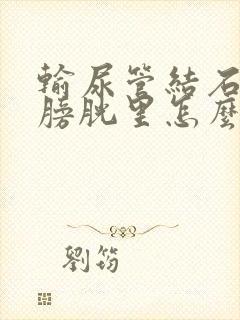 輸尿管結石
膀胱里怎麼
劉筠